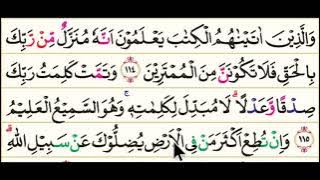 وَالَّذِيْنَ اٰتَيْنٰهُمُ الْكِتٰبَ يَعْلَمُوْنَ اَنَّهٗ مُنَزَّلٌ مِّنْ رَّبِّكَ
بِالْحَقِّ فَلَا تَكُوْنَنَّ مِنَ الْمُمْتَرِيْنَ ۝۱۱۴ وَتَمَّتْ كَلِمَتُ رَبِّكَ
صِدْقًا وَّعَدْلًا ؕ لَا مُبَدِّلَ لِكَلِمٰتِهٖ ۚ وَهُوَ السَّمِيْعُ الْعَلِيْمُ
۝۱۱۵ وَاِنْ تُطِعْ اَكْثَرَ مَنْ فِى الْاَرْضِ يُضِلُّوْكَ عَنْ سَبِيْلِ اللّٰهِ ؕ